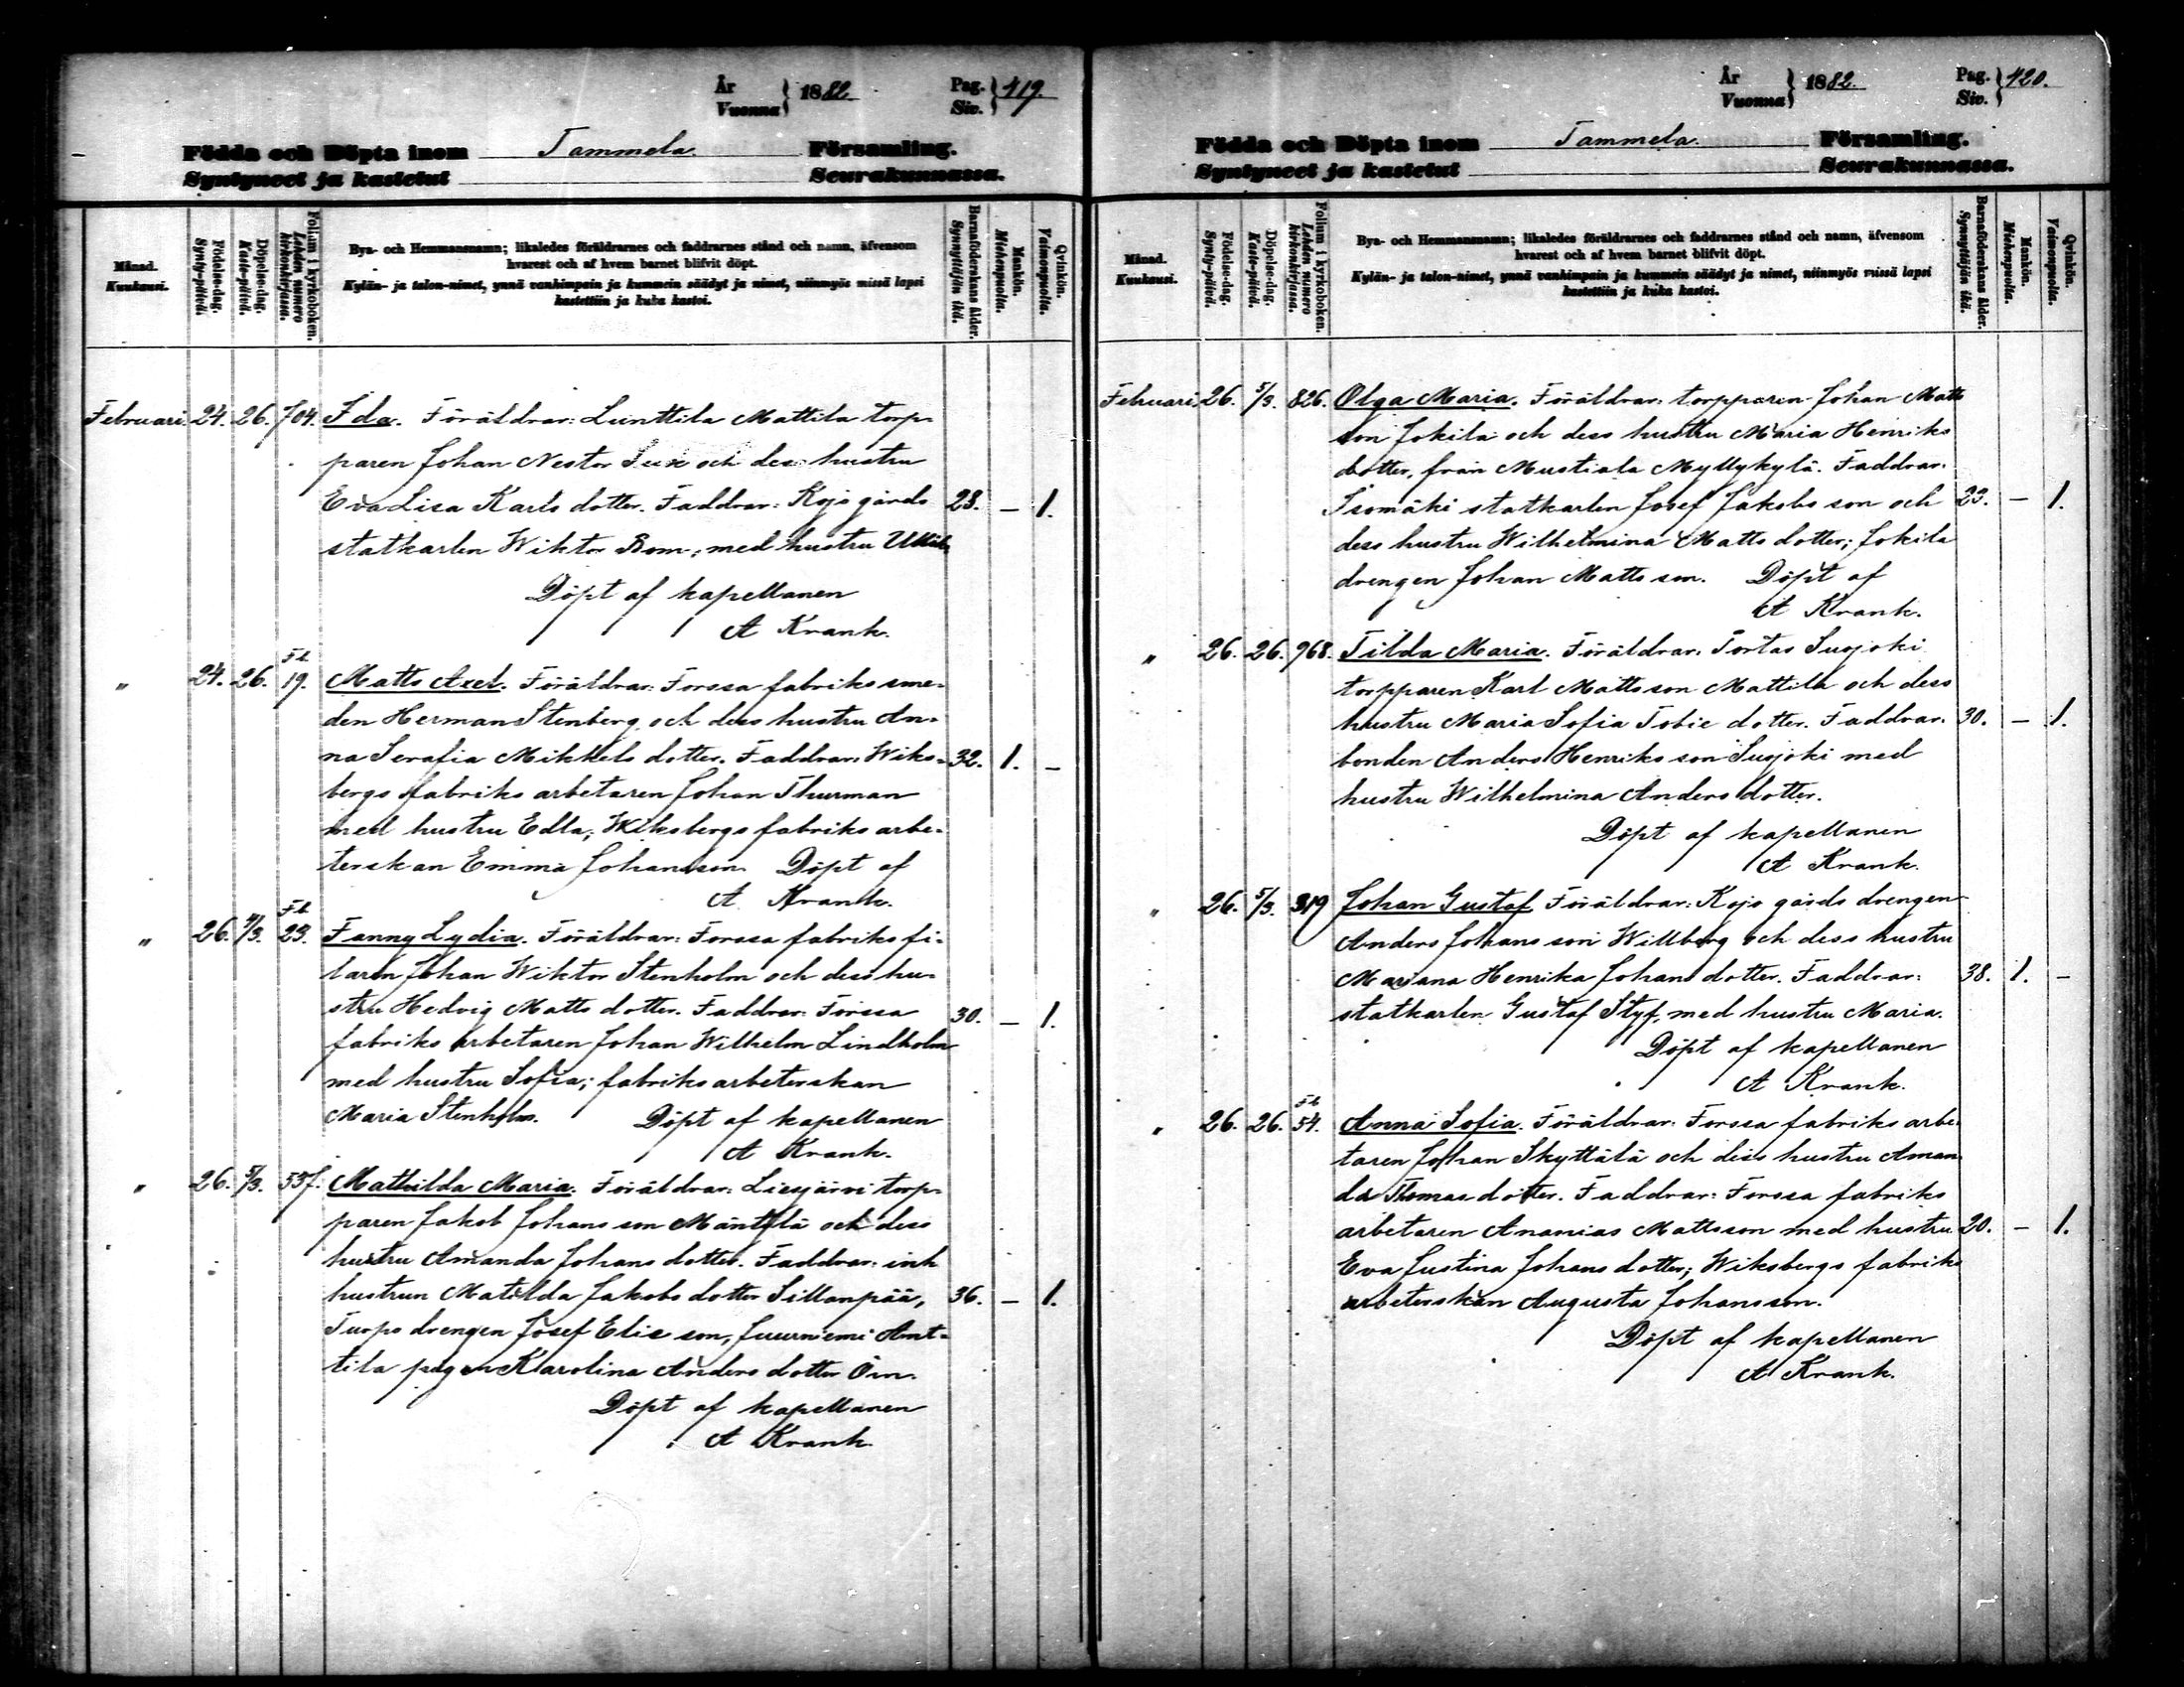 År
Vuonna } 1882.
Pag.
Siv. } 419.
Födda och Döpta inom Tammela. Församling.
Syntyneet ja kastetut Seurakunnassa.
Månad.
Kuukausi.
Födelse-dag.
Synty-päivä.
Döpelse-dag.
Kaste-päivä.
Folium i kyrkoboken.
Lehden numero
kirkonkirjassa.
Bya- och Hemmansnamn; likaledes föräldrarnes och faddrarnes stånd och namn, äfvensom
hvarest och af hvem barnet blifvit döpt.
Kylän- ja talon-nimet, ynnä vanhimpain ja kummein säädyt ja nimet, niinmyös missä lapsi
kastettiin ja kuka kastoi.
Barnaföderskans ålder.
Synnyttäjän ikä.
Mankön.
Miehenpuolta.
Qvinkön.
Vaimonpuolta.
Februari. 24. 26. 704. Ida. Föräldrar: Lunttila Mattila torp-
paren Johan Nestor och dess hustru
Eva Lisa Karls dotter. Faddrar: Kojo gårds 28. — 1.
statkarlen Wiktor Bom, med hustru
Döpt af kapellanen
A Krank.
" 24. 26. Fb. 19. Matts Axel. Föräldrar: Forssa fabriks sme-
den Herman Stenberg och dess hustru An-
na Serafia Mikkels dotter. Faddrar: Wiks- 32. 1. —
bergs fabriks arbetaren Johan Thurman
med hustru Edla; Wiksbergs fabriks arbe-
terskan Emma Johansson. Döpt af
A. Krank.
" 26. 4/3. Fb. 23. Fanny Lydia. Föräldrar: Forssa fabriks fi-
laren Johan Wiktor Stenholm och dess hu-
stru Hedvig Matts dotter. Faddrar: Forssa 30. — 1.
fabriks arbetaren Johan Wilhelm Lindholm
med hustru Sofia; fabriks arbeterskan
Maria Stenholm. Döpt af kapellanen
A Krank.
" 26. 5/3. 557. Mathilda Maria. Föräldrar: Liesjärvi torp-
paren Jakob Johans son Mäntylä och dess
hustru Amanda Johans dotter. Faddrar: inh
hustrun Matilda Jakobs dotter Sillanpää, 36. — 1.
Turpo drengen Josef Elie son, Juurniemi Ant-
tila pigan Karolina Anders dotter Öm.
Döpt af kapellanen
A Krank.
År
Vuonna } 1882.
Pag.
Siv. } 420.
Födda och Döpta inom Tammela. Församling.
Syntyneet ja kastetut Seurakunnassa.
Månad.
Kuukausi.
Födelse-dag.
Synty-päivä.
Döpelse-dag.
Kaste-päivä.
Folium i kyrkoboken.
Lehden numero
kirkonkirjassa.
Bya- och Hemmansnamn; likaledes föräldrarnes och faddrarnes stånd och namn, äfvensom
hvarest och af hvem barnet blifvit döpt.
Kylän- ja talon-nimet, ynnä vanhimpain ja kummein säädyt ja nimet, niinmyös missä lapsi
kastettiin ja kuka kastoi.
Barnaföderskans ålder.
Synnyttäjän ikä.
Mankön.
Miehenpuolta.
Qvinkön.
Vaimonpuolta.
Februari. 26. 5/3. 826. Olga Maria. Föräldrar: torpparen Johan Matts
son Jokila och dess hustru Maria Henriks
dotter, från Mustiala Myllykylä. Faddrar:
Isomäki statkarlen Josef Jakobs son och 23. — 1.
dess hustru Wilhelmina Matts dotter; Jokila
drengen Johan Matts son. Döpt af
A Krank.
" 26. 26. 968. Tilda Maria. Föräldrar: Tortas Susjoki
torpparen Karl Matts son Mattila och dess
hustru Maria Sofia Tobie dotter. Faddrar: 30. — 1.
bonden Anders Henriks son Susjoki med
hustru Wilhelmina Anders dotter.
Döpt af kapellanen
A Krank.
" 26. 5/3. 319 Johan Gustaf Föräldrar: Kojo gårds drengen
Anders Johans son Willberg och dess hustru
Mariana Henrika Johans dotter. Faddrar: 38. 1. —
statkarlen Gustaf Styf, med hustru Maria.
Döpt af kapellanen
A Krank.
" 26. 26. Fb 54. Anna Sofia. Föräldrar: Forssa fabriks arbe-
taren Johan Skyttälä och dess hustru Aman
da Thomas dotter. Faddrar: Forssa fabriks
arbetaren Ananias Mattsson med hustru 20. — 1.
Eva Justina Johans dotter; Wiksbergs fabriks
arbeterskan Augusta Johansson.
Döpt af kapellanen
A Krank.